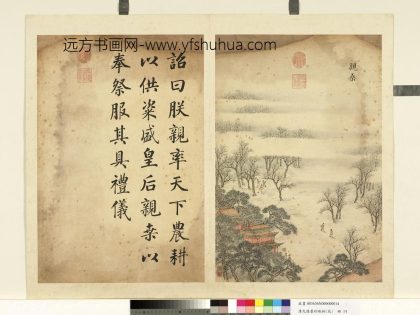 远方书画网-www.yfshuhua.com
親桑
詔曰朕親率天下農耕
以供粢盛皇后親桑以
奉祭服其具禮儀